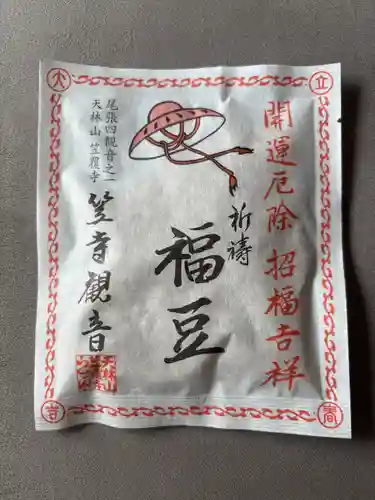 立春大吉
開運厄除 招福吉祥
祈祷
福豆
尾張四観音之一
天林山 笠覆寺
笠寺観音